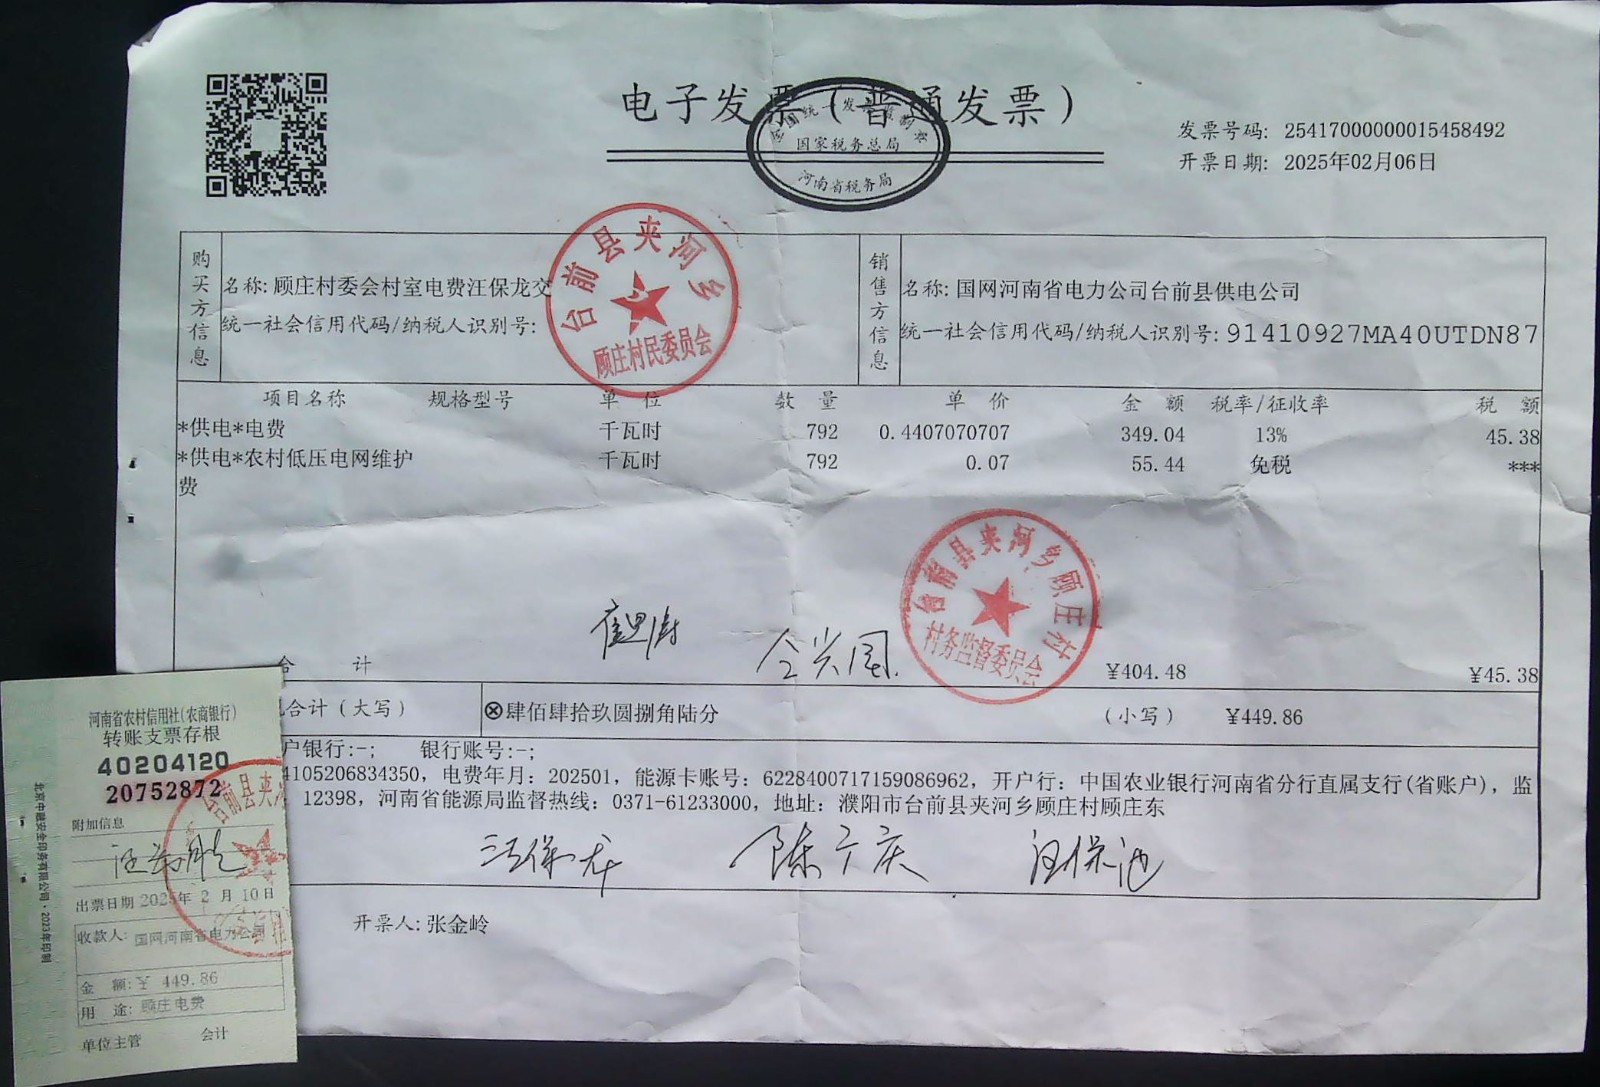 电子发票（普通发票）
全国统一发票监制章
国家税务总局
河南省税务局
发票号码: 25417000000015458492
开票日期: 2025年02月06日
购买方信息
名称: 顾庄村委会村室电费汪保龙交
统一社会信用代码/纳税人识别号:
台前县夹河乡
顾庄村民委员会
销售方信息
名称: 国网河南省电力公司台前县供电公司
统一社会信用代码/纳税人识别号: 91410927MA40UTDN87
项目名称 规格型号 单 位 数 量 单 价 金 额 税率/征收率 税 额
*供电*电费 千瓦时 792 0.4407070707 349.04 13% 45.38
*供电*农村低压电网维护 千瓦时 792 0.07 55.44 免税 ***
费
台前县夹河乡顾庄村
村务监督委员会
仝兴国
合 计 ¥404.48 ¥45.38
合计（大写） ⊗肆佰肆拾玖圆捌角陆分 （小写） ¥449.86
户银行:-; 银行账号:-;
4105206834350, 电费年月: 202501, 能源卡账号: 6228400717159086962, 开户行: 中国农业银行河南省分行直属支行(省账户), 监
12398, 河南省能源局监督热线: 0371-61233000, 地址: 濮阳市台前县夹河乡顾庄村顾庄东
汪保龙 陈广庆 汪保池
开票人: 张金岭
河南省农村信用社(农商银行)
转账支票存根
40204120
20752872
附加信息
出票日期 2025年 2 月 10 日
收款人: 国网河南省电力公司
金 额: ¥ 449.86
用 途: 顾庄电费
单位主管 会计
台前县夹